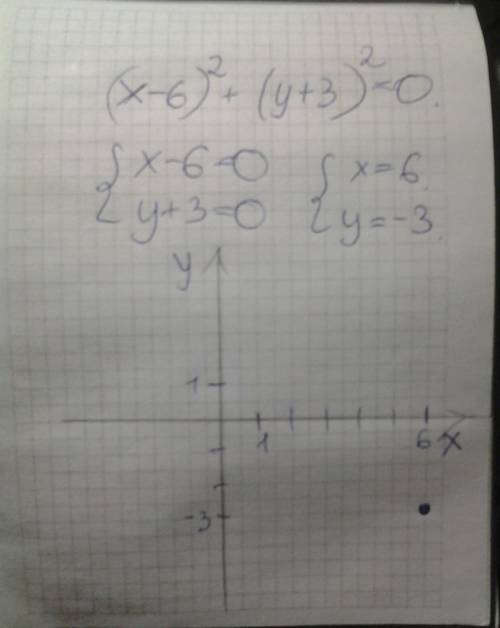 (x-6)²+(y+3)²=0.
{ x-6=0 { x=6.
{ y+3=0 { y=-3.
y
1
1 6 x
-3